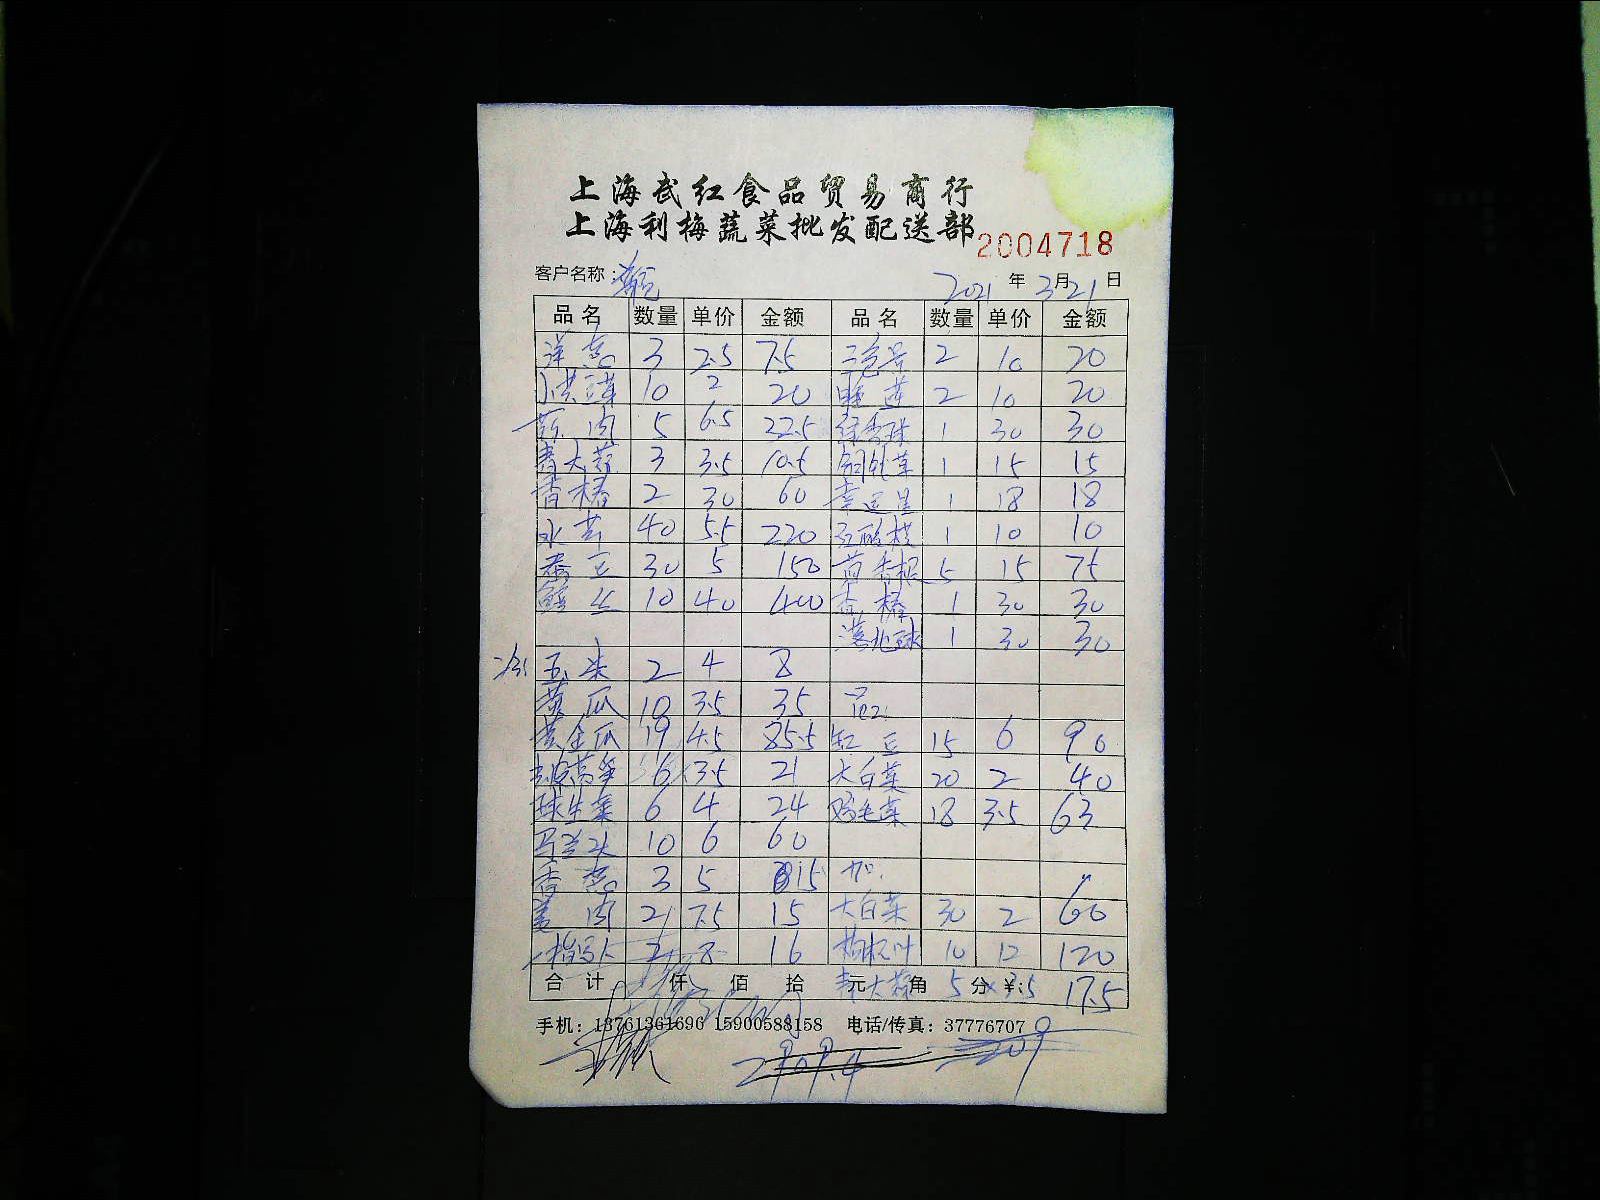 上海武红食品贸易商行
上海利梅蔬菜批发配送部
2004718
客户名称：
2021年3月21日
品名 数量 单价 金额 品名 数量 单价 金额
洋葱 3 2.5 7.5 三色堇 2 10 20
小洪 10 2 20 睡莲 2 10 20
肉 5 6.5 22.5 1 30 30
青大蒜 3 3.5 10.5 铜钱草 1 15 15
香椿 2 30 60 幸运星 1 18 18
水芹 40 5.5 220 1 10 10
蚕豆 30 5 150 茴香根 5 15 75
鳝丝 10 40 400 香椿 1 30 30
1 30 30
玉米 2 4 8
黄瓜 10 3.5 35
黄金瓜 19 4.5 85.5 豇豆 15 6 90
去皮莴笋 6 3.5 21 大白菜 20 2 40
球生菜 6 4 24 鸡毛菜 18 3.5 63
马兰头 10 6 60
香葱 3 5 15 加.
肉 2 7.5 15 大白菜 30 2 60
2 8 16 枸杞叶 10 12 120
合计 仟 佰 拾 元 角 分 ¥:
青大蒜 5×3.5 17.5
手机：13761361696 15900588158 电话/传真：37776707